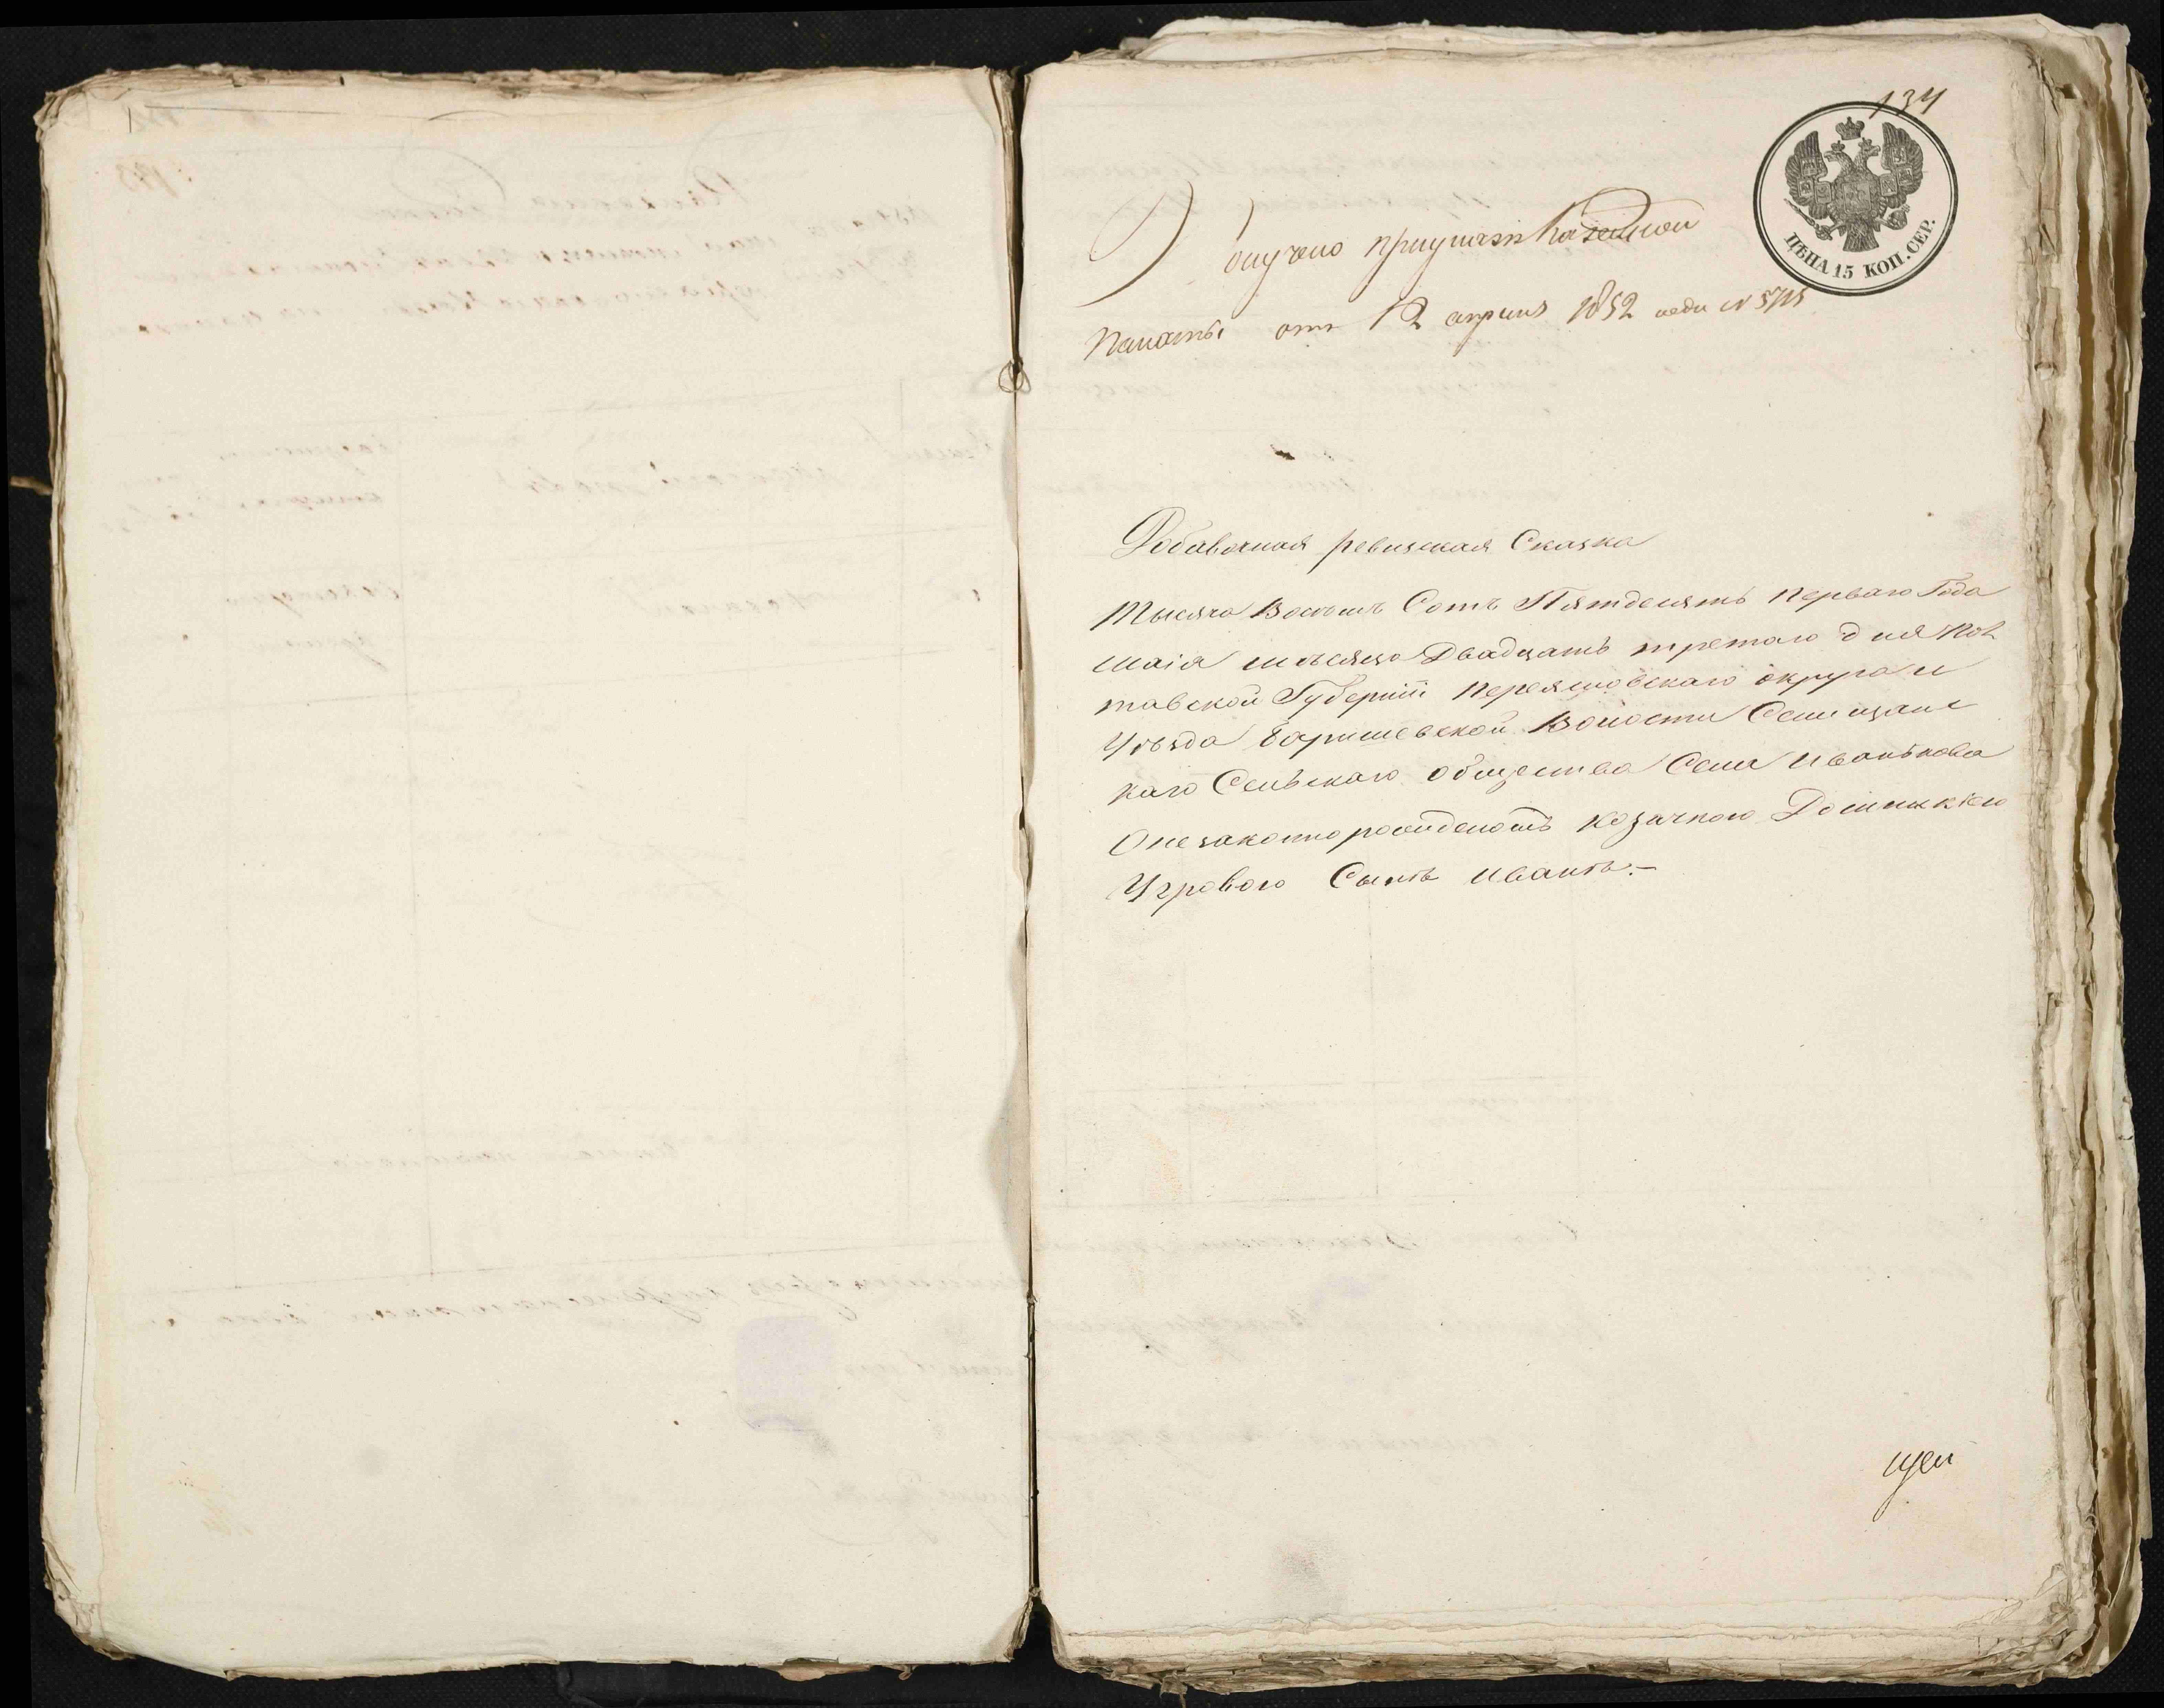 134
ЦѢНА 15 КОП. СЕР.
Получено при указѣ Казенной
Палаты отъ 12 апреля 1852 года № 5715
Добавочная ревизская Сказка
Тысяча Восемь Сотъ Пятдесятъ перваго Года
маія мѣсяца Двадцать третаго дня Пол
тавской Губерніи Переясловскаго округа и
Уѣзда Баришевской Волости Селищанс
каго Сельскаго общества Села Иванькова
О незаконно рожденомъ козачкою Домникіею
Угровою Сынѣ Иванѣ.—